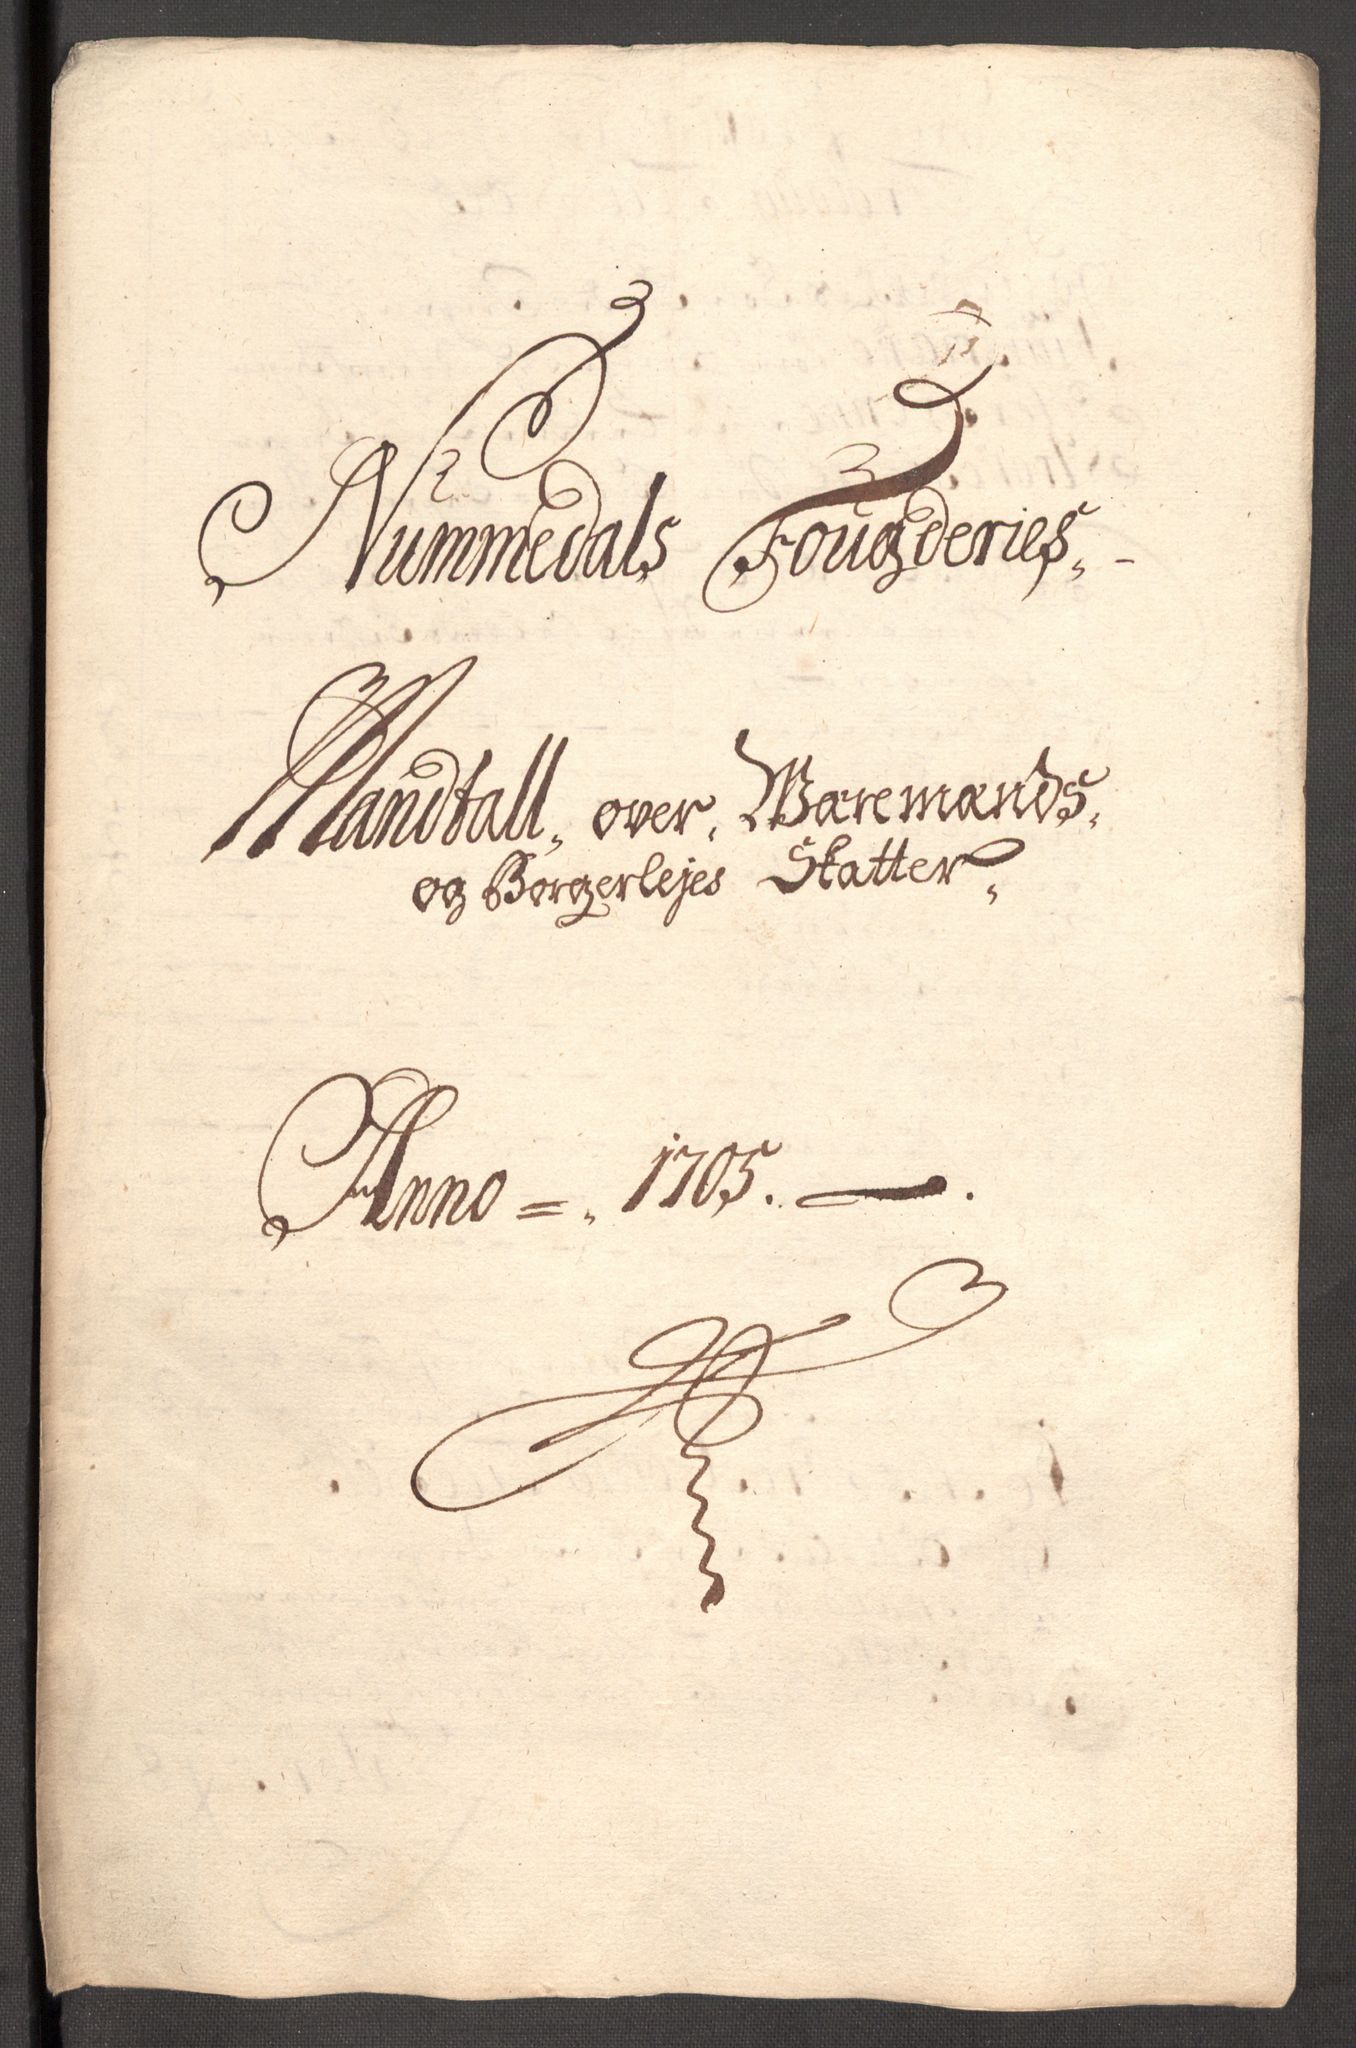 Nummedals Fougderies.
Mandtall, over, Waremænds,
og Borgerlejes Skatter,
Anno =, 1705.